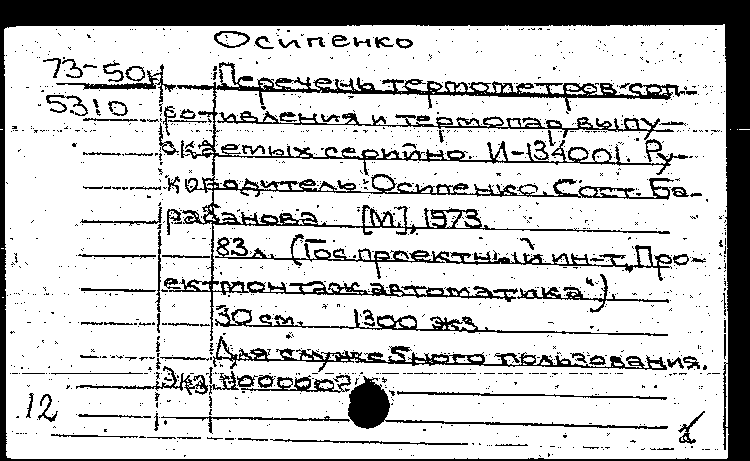 Осипенко
73-50к Перечень термометров соп-
5310 ротивления и термопар, выпу-
скаемых серийно. И-134001. Ру-
ководитель: Осипенко. Сост. Ба-
рабанова. [М.], 1973.
83л. (Гос. проектный ин-т „Про-
ектмонтажавтоматика“).
30 см. 1300 экз.
Для служебного пользования.
Экз N000002
12